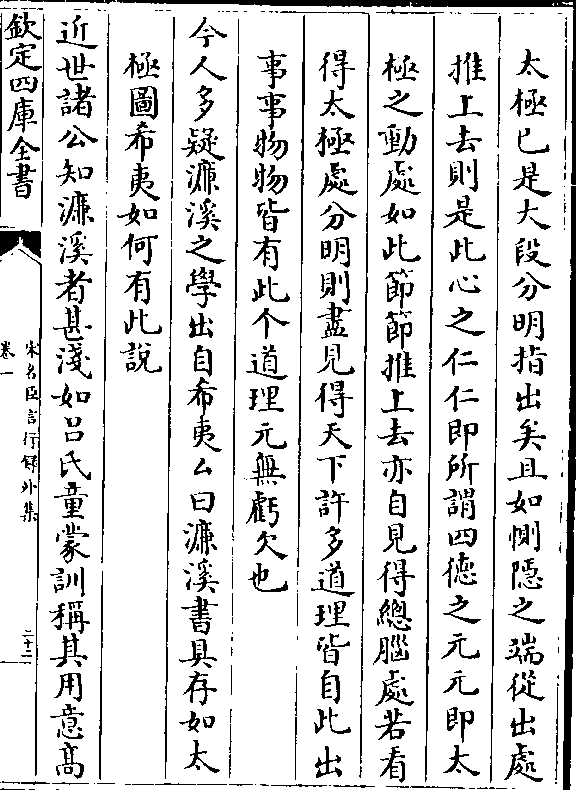 太極已是大段分明指出矣且如惻隱之端從出處
推上去則是此心之仁仁即所謂四德之元元即太
極之動處如此節節推上去亦自見得總腦處若看
得太極處分明則盡見得天下許多道理皆自此出
事事物物皆有此个道理元無虧欠也
今人多疑濂溪之學出自希夷公曰濂溪書具存如太
極圖希夷如何有此說
近世諸公知濂溪者甚淺如呂氏童蒙訓稱其用意高
欽定四庫全書
宋名臣言行錄外集
卷一
二十二